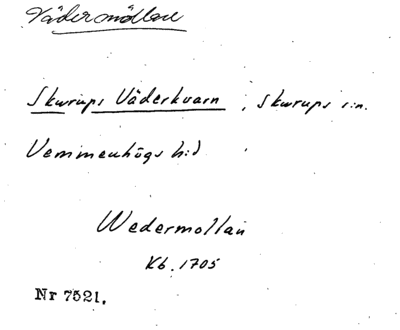 Vädermöllan
Skurups Väderkvarn, Skurups s:n.
Vemmenhögs h:d
Wedermollan
Kb. 1705
Nr 7521.